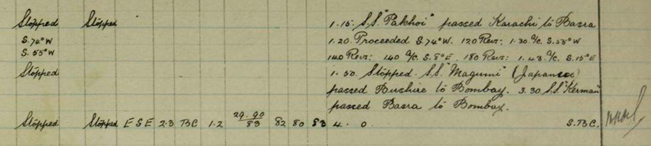 Stopped Stopped 1.15. S.S "Pakhoi" passed Karachi to Basra
S.74°W 1.20 Proceeded S.74°W. 120 Revs: 1.30 A/C. S.55°W
S.55°W 140 Revs: 140 A/C S.5°E 180 Revs: 1.43 A/C. S.15°E
Stopped 1.50. Stopped. S.S "Magumi" (Japanese)
passed Bushire to Bombay. 3.30 S.S "Kerman
passed Basra to Bombay.
Stopped Stopped E S E 2-3 TBC. 1.2 29.90/83 82 80 83 4. 0 S.TBC.